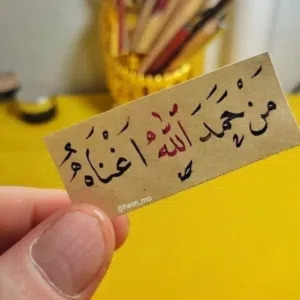 مَنْ حَمِدَ اللَّهَ أَغْنَاهُ
@hasn_mo